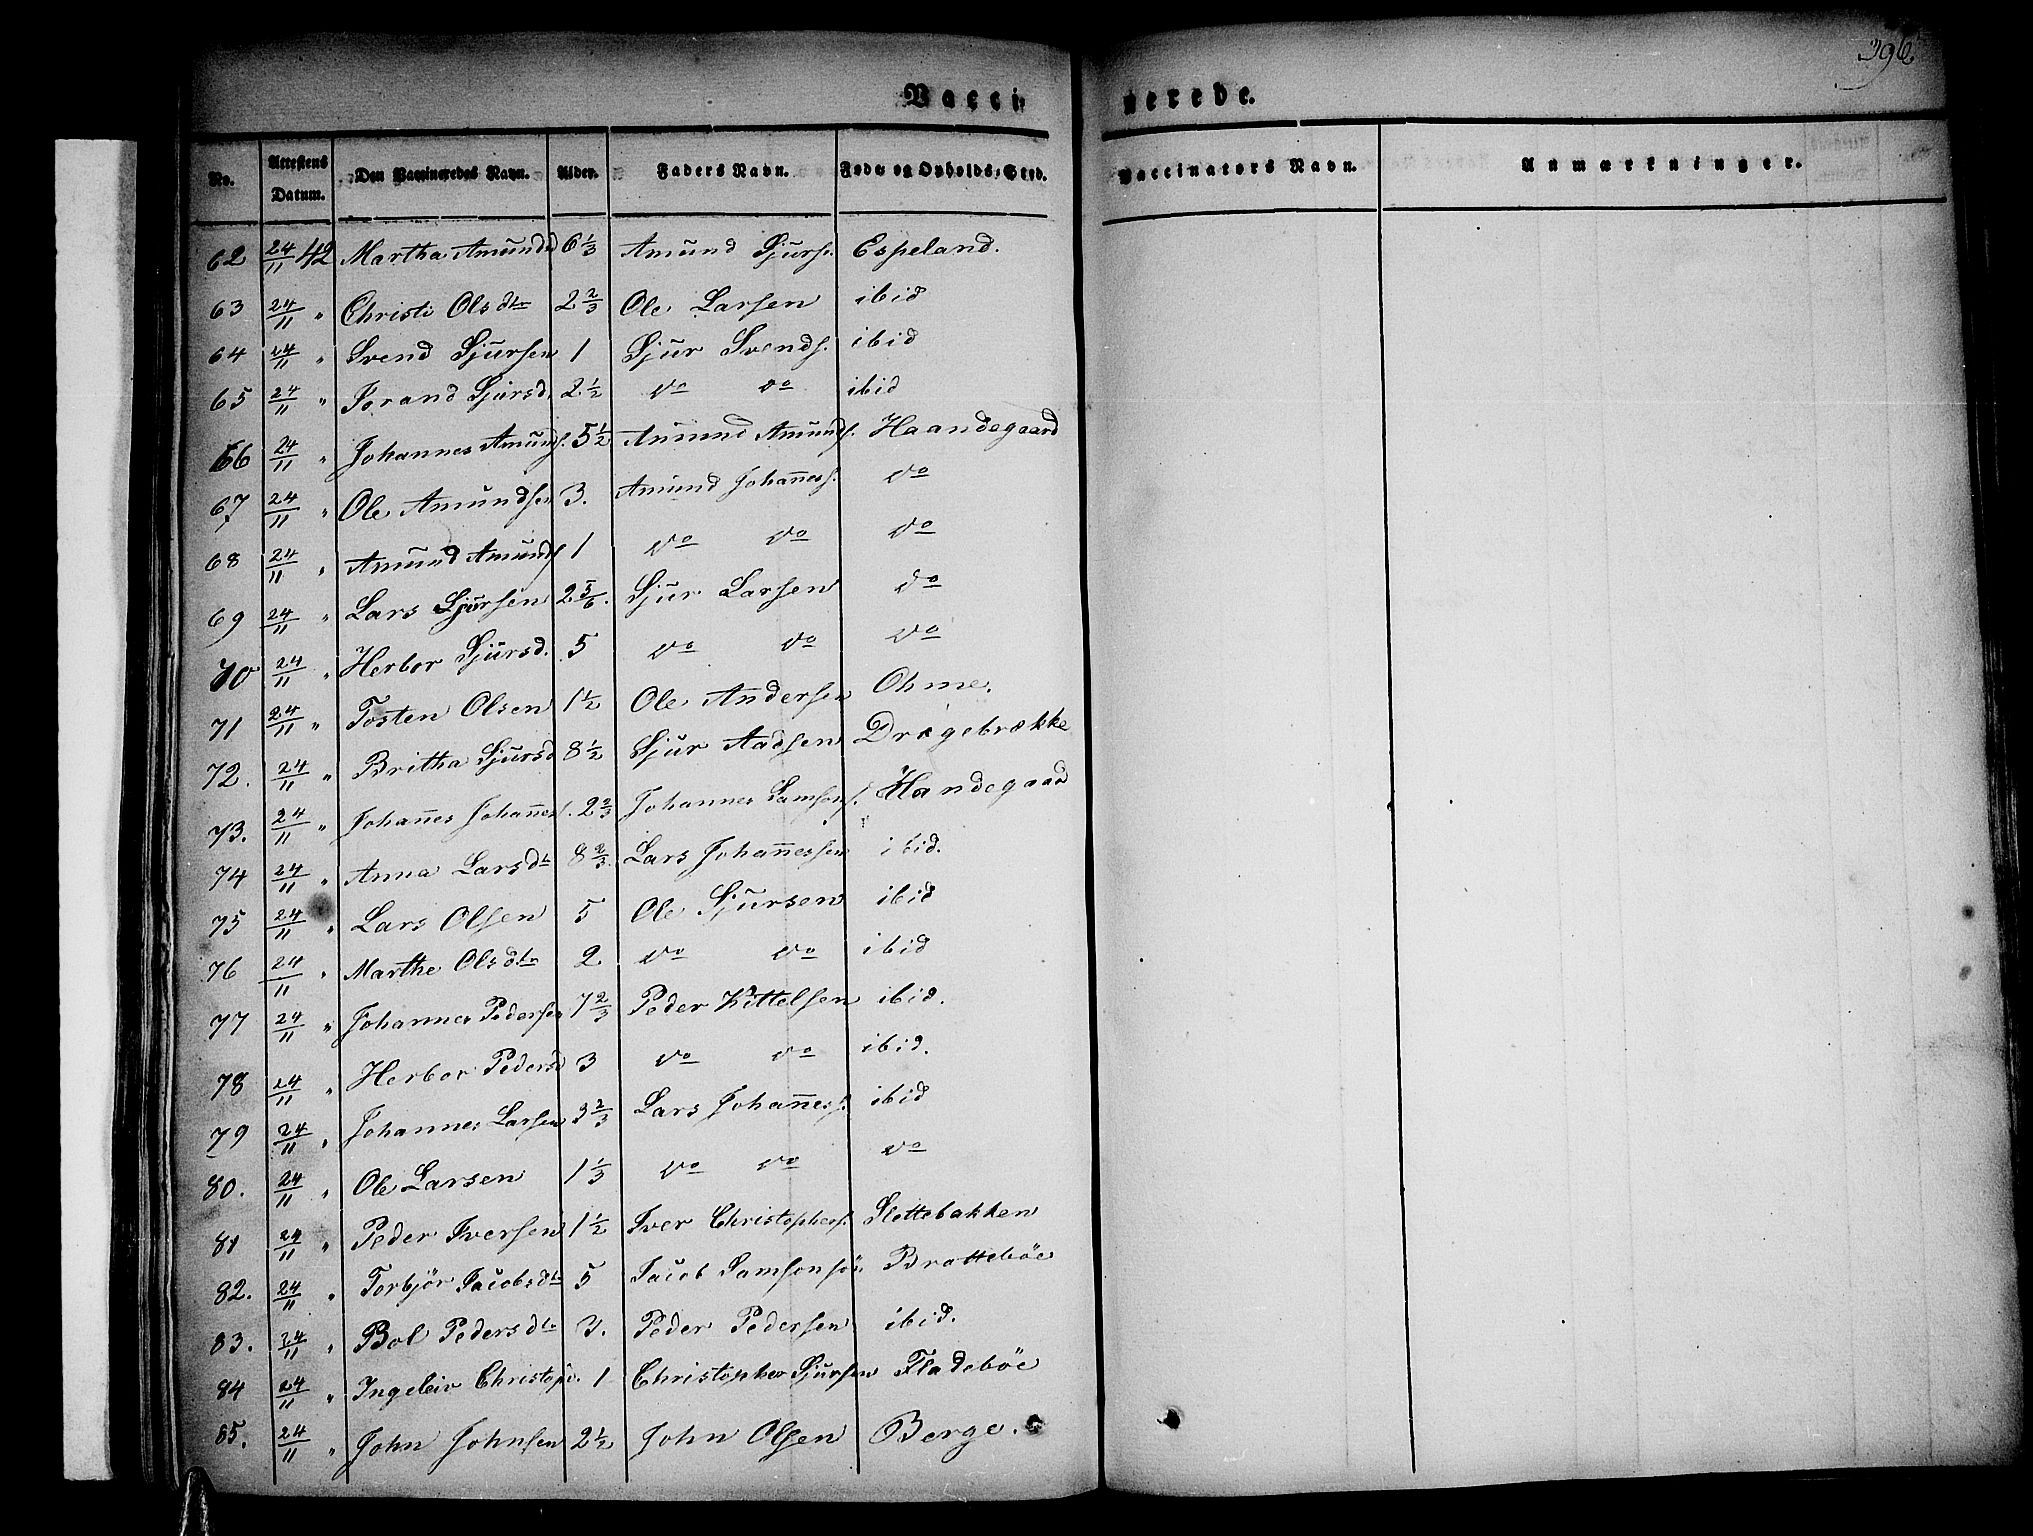 396
Vacci nerede.
No. Attestens Datum. Den Vaccineredes Navn. Alder. Faders Navn. Føde og Opholds-Sted. Vaccinators Navn. Anmærkninger.
62 24/11 42 Martha Amundsd 6 1/3 Amund Sjurs. Espeland.
63 24/11 " Christi Olsdtr 2 2/3 Ole Larsen ibid
64 24/11 " Svend Sjursen 1 Sjur Svends. ibid
65 24/11 " Jorand Sjursd. 2 1/2 do do ibid
66 24/11 " Johannes Amunds. 5 1/2 Amund Amunds. Haandegaard
67 24/11 " Ole Amundsen 3. Amund Johaness. do
68 24/11 " Amund Amunds. 1 do do do
69 24/11 " Lars Sjursen 2 5/6. Sjur Larsen do
70 24/11 " Herbor Sjursd. 5 do do do
71 24/11 " Tosten Olsen 1 1/2 Ole Andersen Ohme.
72. 24/11 " Britha Sjursd 8 1/2 Sjur Aadsen Dragebrække
73. 24/11 " Johanes Johanes. 2 2/3 Johannes Samsons. Handegaard
74 24/11 " Anna Larsdtr 8 2/3. Lars Johanessen ibid.
75 24/11 " Lars Olsen 5 Ole Sjursen ibid
76 24/11 " Marthe Olsdtr 2. do do ibid
77 24/11 " Johannes Pedersen 7 2/3 Peder Kittelsen ibid.
78 24/11 " Herbor Pedersd 3 do do ibid.
79 24/11 " Johannes Larsen 3 2/3 Lars Johaness. ibid
80. 24/11 " Ole Larsen 1 1/3 do do do
81 24/11 " Peder Iversen 1 1/2 Iver Christophers. Slottebakken
82. 24/11 " Torbjør Jacobsdtr 5 Jacob Samsonsøn Brattebøe
83. 24/11 " Bol Pedersdtr 3. Peder Pedersen ibid.
84 24/11 " Ingeleiv Christoph. 1 Christopher Sjursen Fladebøe
85. 24/11 " John Johnsen 2 1/2 John Olsen Berge.